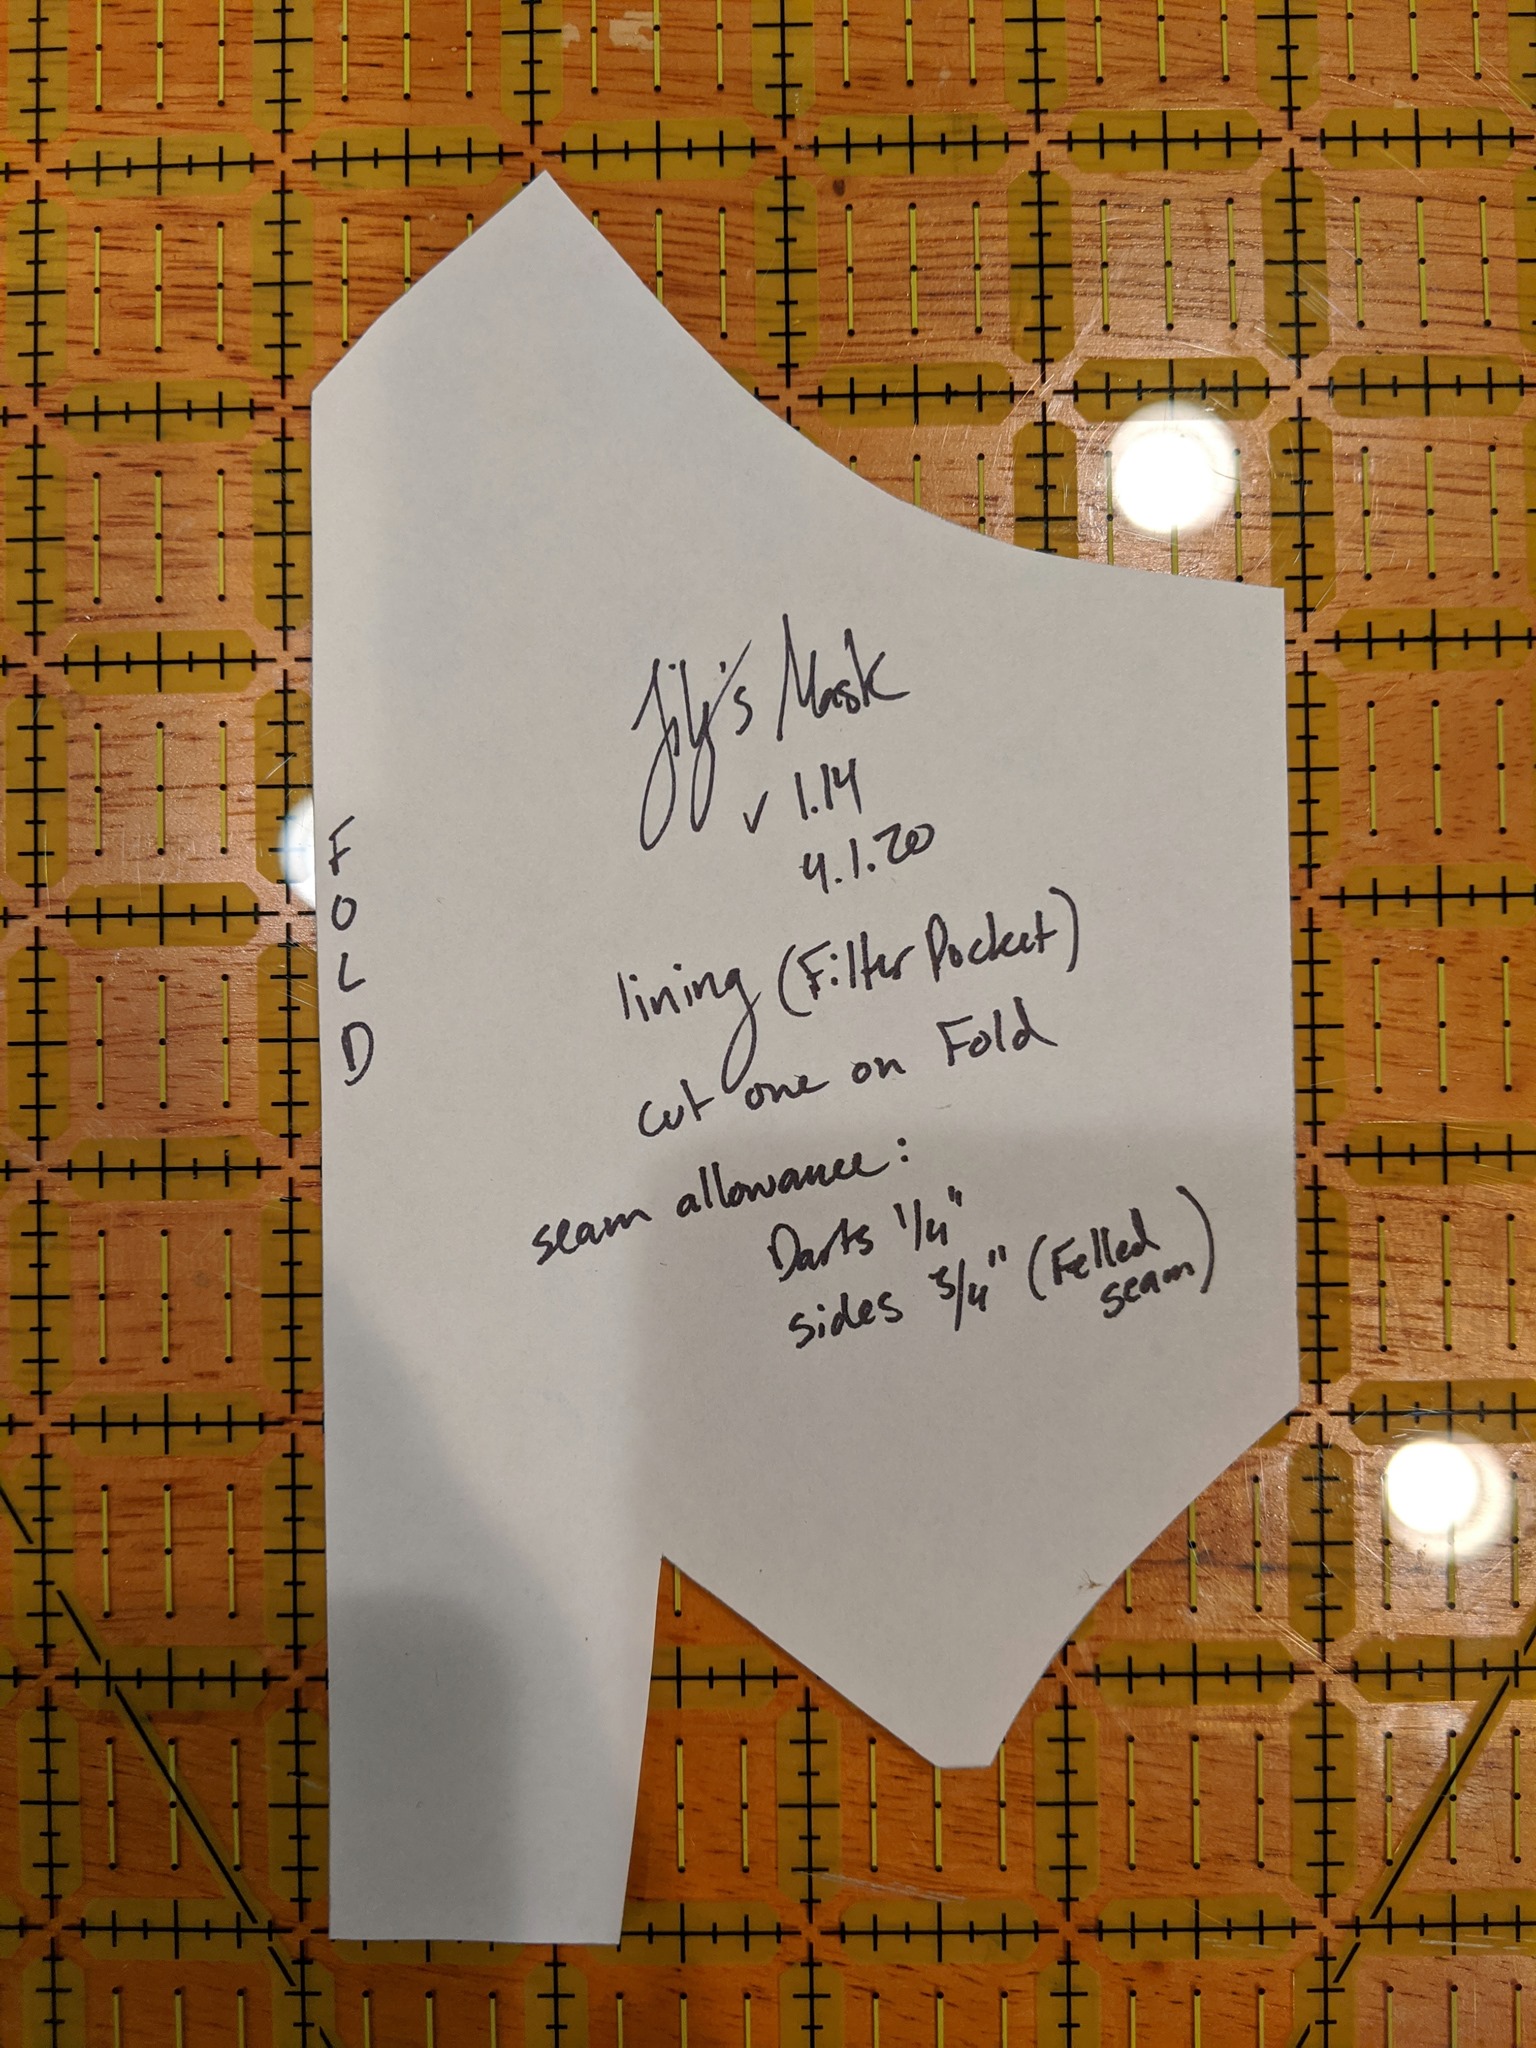 FOLD
Lily's Mask
v 1.14
4.1.20
lining (Filter Pocket)
cut one on Fold
seam allowance:
Darts 1/4"
sides 3/4" (Felled
seam)